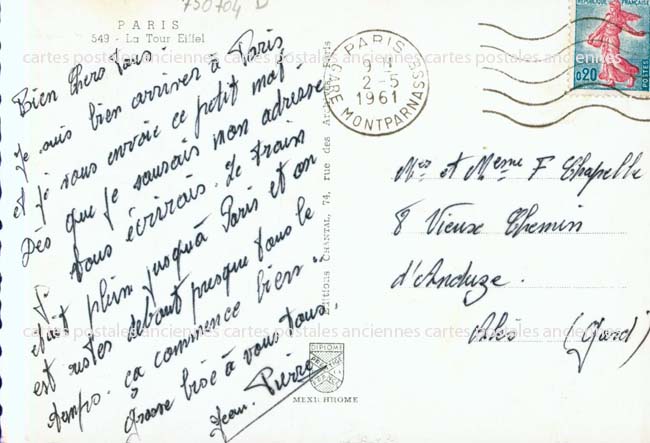 750704 D
PARIS
549 - La Tour Eiffel
Bien Chers tous.
Je suis bien arriver à Paris
et je vous envoie ce petit mot
Dès que je saurais mon adresse
je vous écrirais. Le train
était plein jusqu'à Paris et on
est restés debout presque tous le
temps. ça commence bien.
Grosse bise à vous tous.
Jean. Pierre
Editions CHANTAL, 74, rue des Archives, Paris
DIPLOME
PRESTIGE
MEXICHROME
PARIS
2-5
1961
GARE MONTPARNASSE
REPUBLIQUE FRANÇAISE
0,20
POSTES
Mrs et Meme F Chapelle
8 Vieux Chemin
d'Anduze.
Alès (Gard)
cartes postales anciennes cartes postales anciennes cartes postales anciennes
cartes postales anciennes cartes postales anciennes cartes postales anciennes